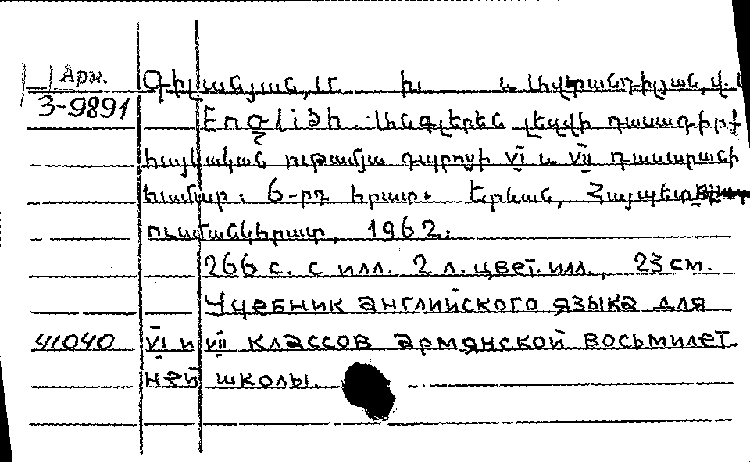 Арм. Գիլանյան, Մ. Խ. և Լիլիթանդիլյան, Վ.
3-9891 English. Անգլերեն լեզվի դասագիրք
հայկական ութամյա դպրոցի VI և VII դասարանի
համար: 6-րդ հրատ. Երևան, Հայպետ
ուսմանկհրատ, 1962.
266 с. с илл. 2 л. цвет. илл., 23 см.
Учебник английского языка для
41040 VI и VII классов армянской восьмилет
ней школы.